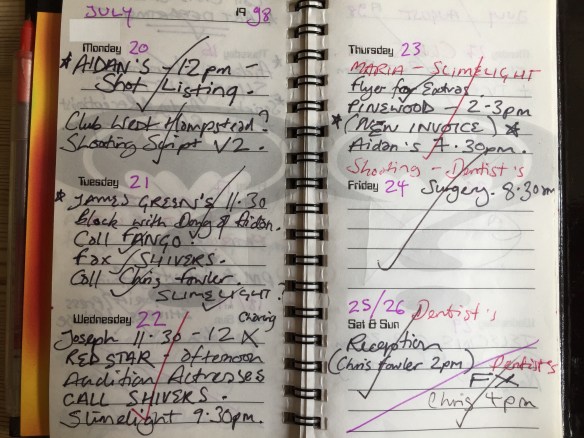 JULY 1998
Monday 20
* AIDAN'S - 12pm -
Shot Listing.
Club West Hampstead?
Shooting Script V2.
Tuesday 21
* JAMES GREEN'S 11.30
block with Doug & Aidan.
Call FANGO.
Fax SHIVERS.
Call Chris Fowler.
SLIMELIGHT?
Wednesday 22
Joseph 11.30 - 12 X
RED STAR - afternoon
Audition Actresses
CALL SHIVERS.
Slimelight 9.30pm.
Thursday 23
MARIA - SLIMELIGHT
Flyer for Extras.
PINEWOOD - 2-3pm
* (NEW INVOICE) *
Aidan's 7.30pm.
Shooting - Dentist's
Friday 24 Surgery. 8.30am
25/26 Dentist's
Sat & Sun
Reception
(Chris Fowler 2pm) Dentists
FX
Chris 4pm